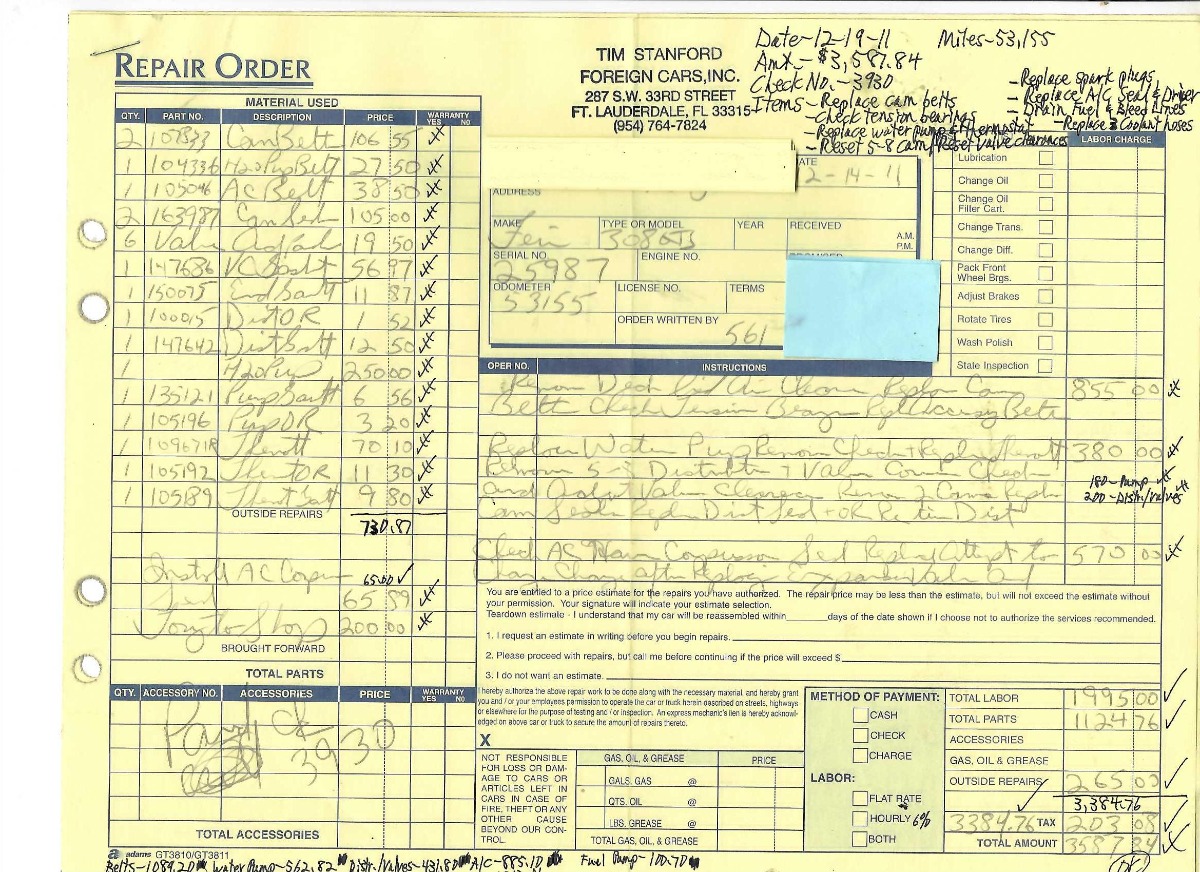 Date-12-19-11 Miles-53,155
Amt.-$3,587.84
Check No.-3930
Items-Replace cam belts
-Check tension bearings
-Replace water pump & thermostat
-Reset 5-8 cam/reset valve clearances
-Replace spark plugs
-Replace A/C Seal & Drier
-Drain Fuel & Bleed Lines
-Replace 3 Coolant hoses
REPAIR ORDER
TIM STANFORD
FOREIGN CARS, INC.
287 S.W. 33RD STREET
FT. LAUDERDALE, FL 33315
(954) 764-7824
MATERIAL USED
QTY. PART NO. DESCRIPTION PRICE WARRANTY YES NO
2 107833 Cam Belt 106 55
1 104336 H2O Pup Belt 27 50
1 105046 AC Belt 38 50
2 163987 Cam Seal 105 00
6 19 50
1 147686 VC Gaskt 56 97
1 150075 End Gaskt 11 87
1 100015 Dist OR 1 52
1 147642 Dist Gaskt 12 50
1 H2O Pup 250 00
1 135121 Pump Gaskt 6 56
1 105196 Pup OR 3 20
1 Thermstt 70 10
1 105192 Ther OR 11 30
1 105189 Thermt Gaskt 9 80
OUTSIDE REPAIRS
730.87
Install AC Compr 65.00
Seal 65 89
Towg to Shop 200 00
BROUGHT FORWARD
TOTAL PARTS
QTY. ACCESSORY NO. ACCESSORIES PRICE WARRANTY YES NO
Paid Ck
3930
TOTAL ACCESSORIES
adams GT3810/GT3811
ADDRESS
DATE
12-14-11
MAKE TYPE OR MODEL YEAR RECEIVED
A.M.
P.M.
308 GTS
SERIAL NO. ENGINE NO.
25987
ODOMETER LICENSE NO. TERMS
53155
ORDER WRITTEN BY
561
LABOR CHARGE
Lubrication
Change Oil
Change Oil
Filler Cart.
Change Trans.
Change Diff.
Pack Front
Wheel Brgs.
Adjust Brakes
Rotate Tires
Wash Polish
State Inspection
OPER NO. INSTRUCTIONS
Remove Deck Lid Air Cleaner Replace Cam 855 00
Belts Check Tension Beargs Rpl Accessy Belts
Replace Water Pump Remove Check & Replace Thermstt 380 00
Remove 5-8 Distributor & Valve Covers Check
180-Pump
200-Distr./Valves
and Adjust Valve Clearances Remove 2 Cams Replace
Cam Seals Replace Dist Seal & OR Retime Dist
Check AC Have Compressor Seal Replaced Attempt to 570 00
Charge after Replacing Expansion Valve and
You are entitled to a price estimate for the repairs you have authorized. The repair price may be less than the estimate, but will not exceed the estimate without
your permission. Your signature will indicate your estimate selection.
Teardown estimate - I understand that my car will be reassembled within ______ days of the date shown if I choose not to authorize the services recommended.
1. I request an estimate in writing before you begin repairs.
2. Please proceed with repairs, but call me before continuing if the price will exceed $
3. I do not want an estimate.
I hereby authorize the above repair work to be done along with the necessary material, and hereby grant
you and / or your employees permission to operate the car or truck herein described on streets, highways
or elsewhere for the purpose of testing and / or inspection. An express mechanic's lien is hereby acknowl-
edged on above car or truck to secure the amount of repairs thereto.
X
NOT RESPONSIBLE
FOR LOSS OR DAM-
AGE TO CARS OR
ARTICLES LEFT IN
CARS IN CASE OF
FIRE, THEFT OR ANY
OTHER CAUSE
BEYOND OUR CON-
TROL.
GAS, OIL, & GREASE PRICE
GALS. GAS @
QTS. OIL @
LBS. GREASE @
TOTAL GAS, OIL, & GREASE
METHOD OF PAYMENT:
CASH
CHECK
CHARGE
LABOR:
FLAT RATE
HOURLY 6%
BOTH
TOTAL LABOR 1995 00
TOTAL PARTS 1124 76
ACCESSORIES
GAS, OIL & GREASE
OUTSIDE REPAIRS 265 00
3,384.76
3384.76 TAX 203 08
TOTAL AMOUNT 3587 84
OK
Belts-1089.20 Water Pump-562.82 Distr./Valves-431.80 A/C-885.10 Fuel Pump-100.70